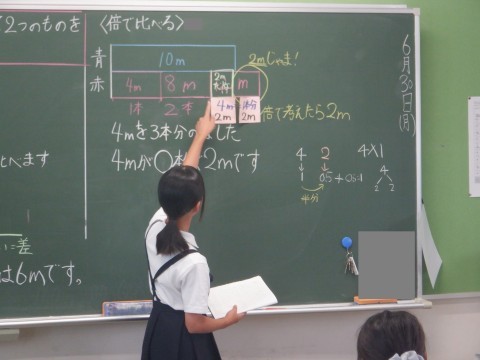 2つのものを
〈倍で比べる〉
青
10m
赤
4m
8m
2m
m
2mじゃま!
1本
2本
4m
2m
1本分
2m
倍で考えたら2m
4mを3本分の
した
4mが○本
2mです
4 2
1 0.5+0.5=1
半分
4×1
4
2 2
べます
に差
は6mです。
6月30日(月)